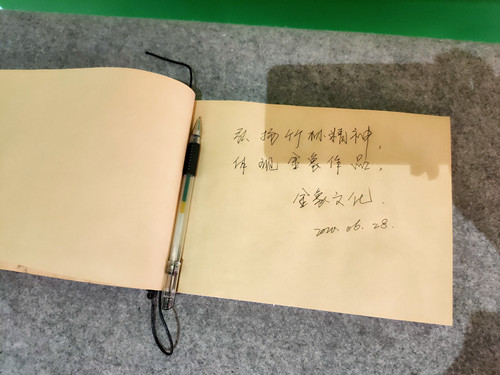 弘扬竹林精神,
体现金象作品。
金象文化.
2020.06.28.